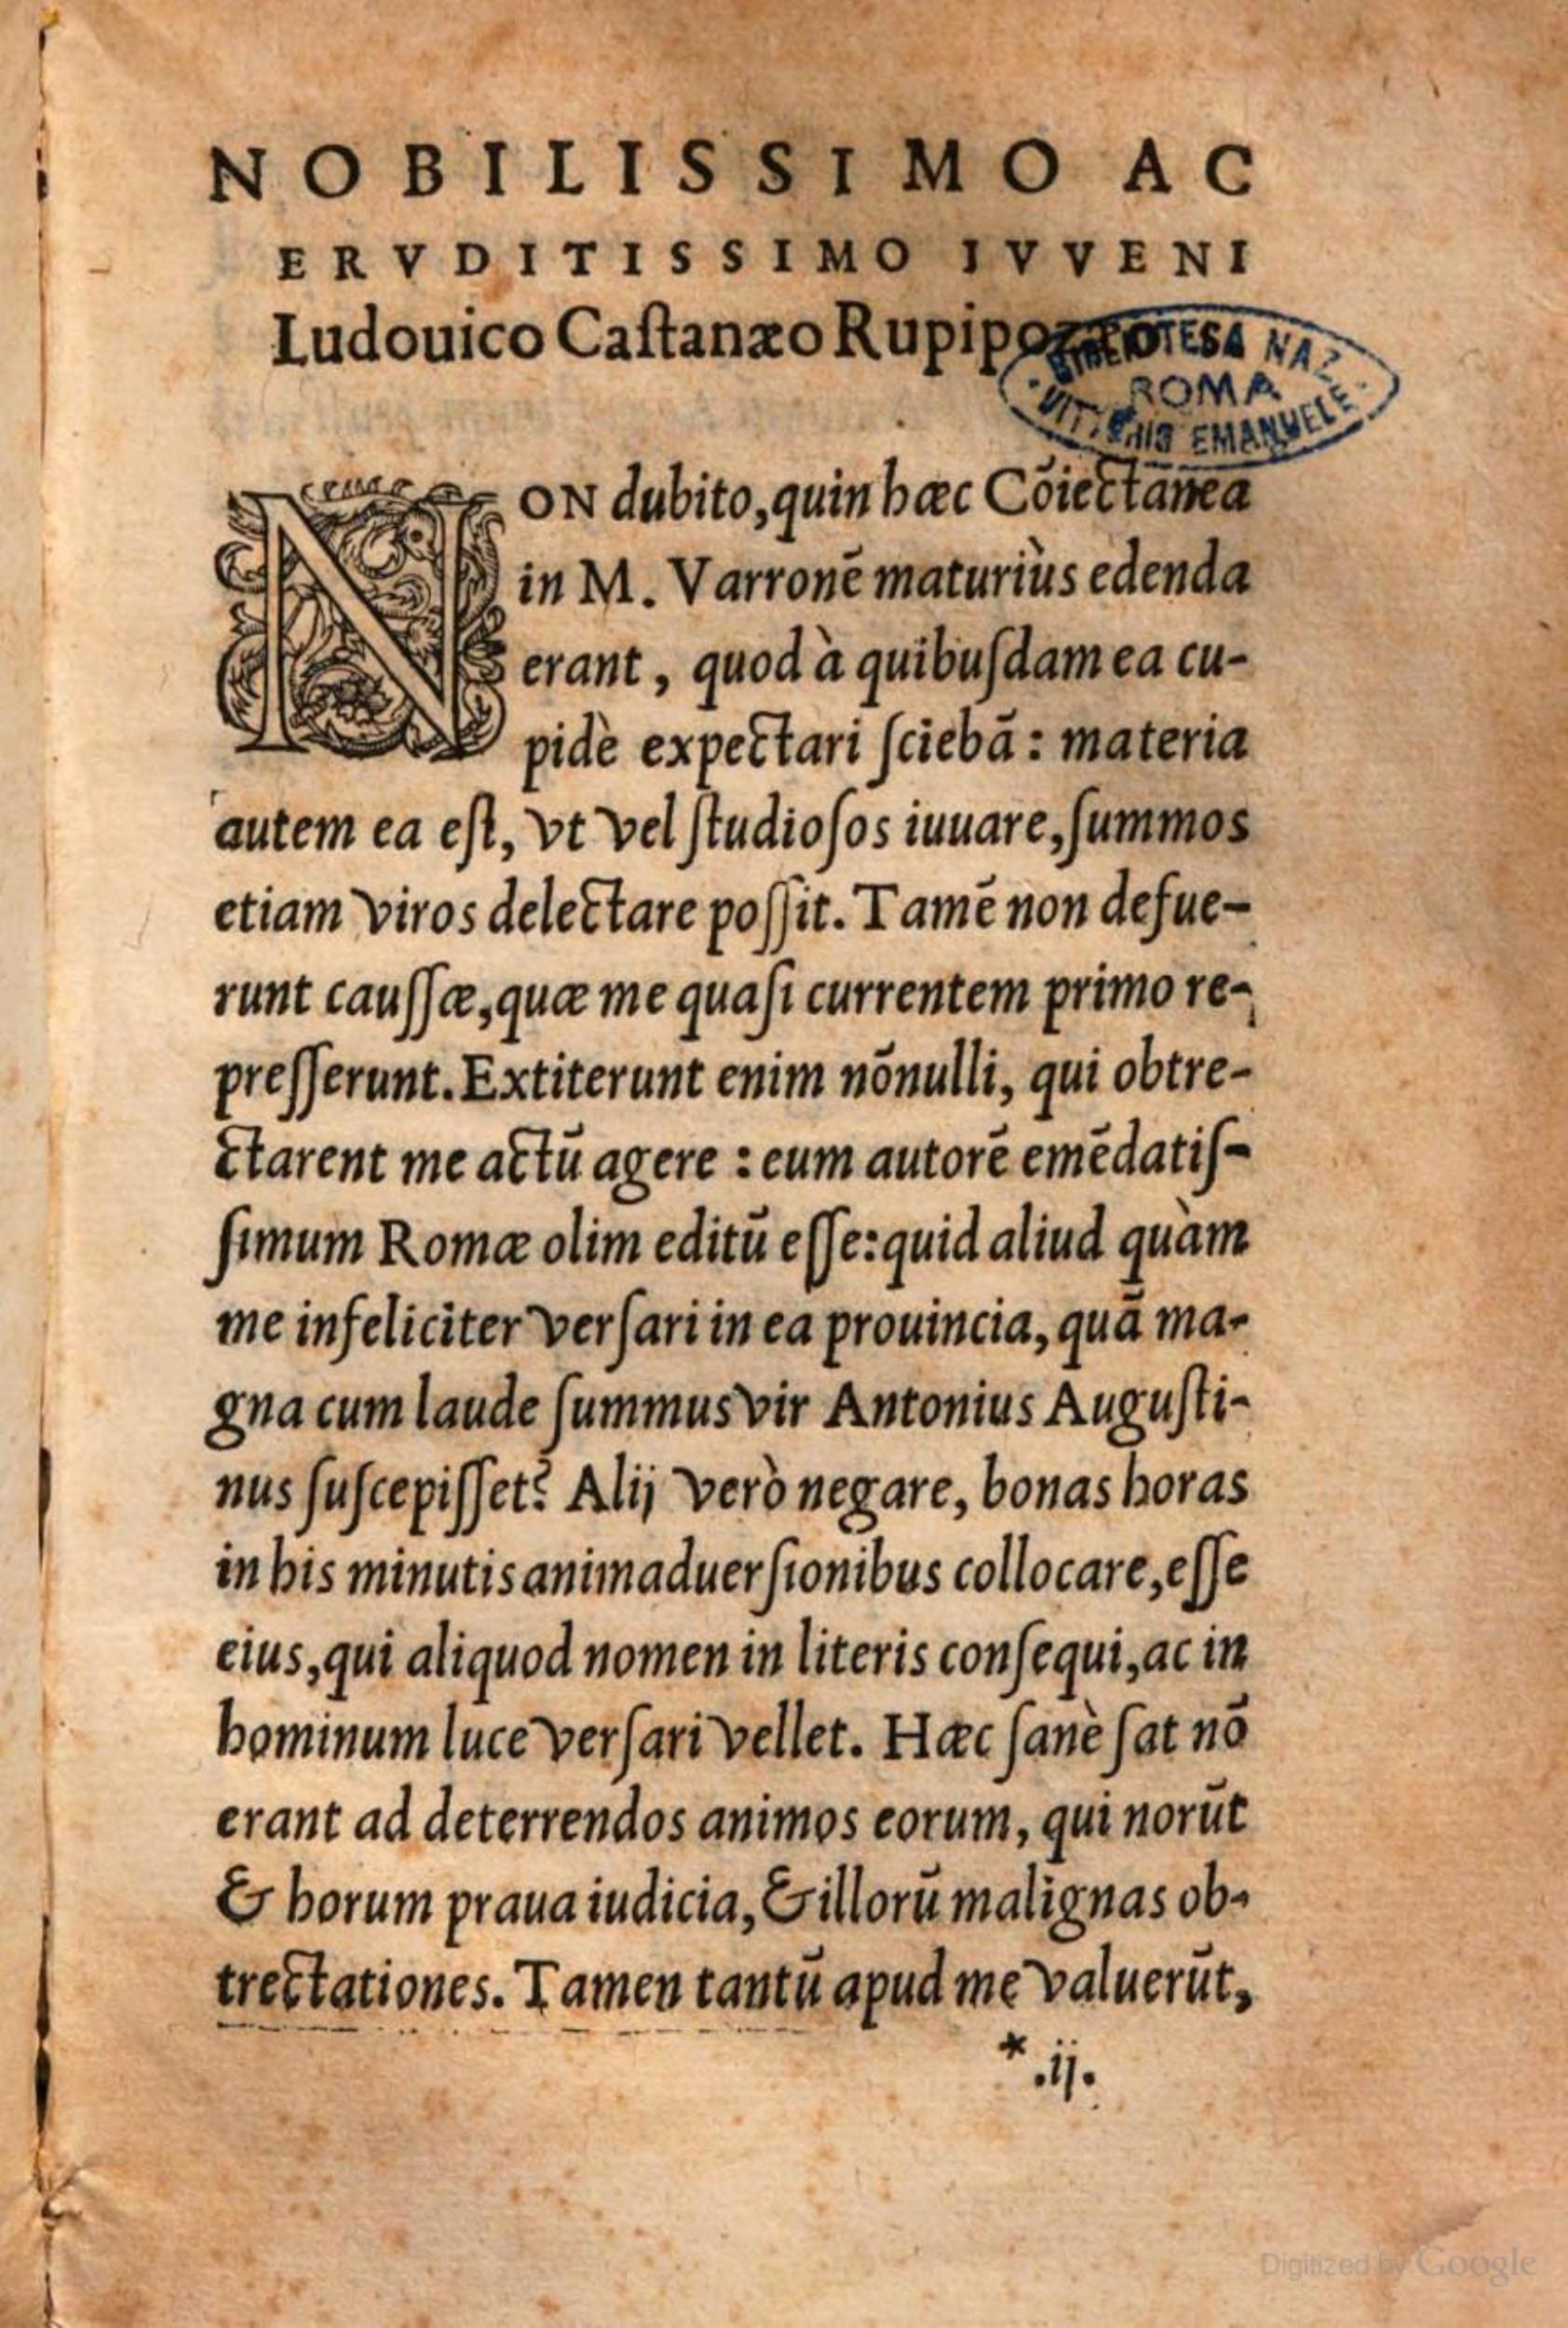 NOBILISSIMO AC
ERVDITISSIMO IVVENI
Ludouico Caſtanæo Rupipozæo
BIBLIOTECA NAZ.
ROMA
VITTORIO EMANUELE
NON dubito, quin hæc Cōiectanea
in M. Varronē maturiùs edenda
erant, quod à quibuſdam ea cu-
pidè expectari ſciebā: materia
autem ea eſt, vt vel ſtudioſos iuuare, ſummos
etiam viros delectare poſſit. Tamē non defue-
runt cauſſæ, quæ me quaſi currentem primo re-
preſſerunt. Extiterunt enim nōnulli, qui obtre-
ctarent me actū agere: eum autorē emēdatiſ-
ſimum Romæ olim editū eſſe: quid aliud quàm
me infeliciter verſari in ea prouincia, quā ma-
gna cum laude ſummus vir Antonius Auguſti-
nus ſuſcepiſſet? Alij verò negare, bonas horas
in his minutis animaduerſionibus collocare, eſſe
eius, qui aliquod nomen in literis conſequi, ac in
hominum luce verſari vellet. Hæc ſanè ſat nō
erant ad deterrendos animos eorum, qui norūt
& horum praua iudicia, & illorū malignas ob-
trectationes. Tamen tantū apud me valuerūt,
*.ij.
Digitized by Google